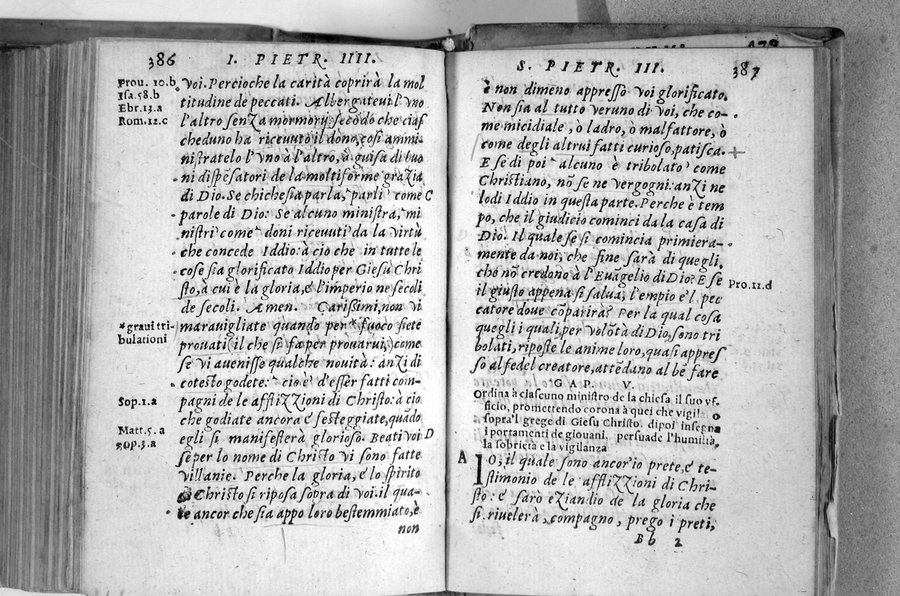 386 I. PIETR. IIII.
Prou. 10.b
Isa.58.b
Ebr.13.a
Rom.12.c
*graui tri-
bulationi
Sop.1.a
Matt.5.a
Sop.3.a
voi. Percioche la carità coprirà la mol
titudine de peccati. Albergateui l'vno
l'altro senza mormorij: secōdo che cias
cheduno ha riceuuto il dono, così ammi-
nistratelo l'vno à l'altro, à guisa di buo
ni dispēsatori de la moltiforme grazia
di Dio. Se chichesia parla, parli come C
parole di Dio: Se alcuno ministra, mi
nistri come doni riceuuti da la virtù
che concede Iddio: à cio che in tutte le
cose sia glorificato Iddio per Giesu Chri
sto, à cui è la gloria, e l'imperio ne secoli
de secoli. Amen. Carissimi, non vi
marauigliate quando per* fuoco siete
prouati, il che si fa per prouarui, come
se vi auenisso qualche nouità: anzi di
cotesto godete: cio è d'esser fatti com-
pagni de le afflizzioni di Christo: à cio
che godiate ancora e festeggiate, quādo
egli si manifesterà glorioso. Beati voi D
se per lo nome di Christo vi sono fatte
villanie. Perche la gloria, e lo spirito
di Christo si riposa sopra di voi. il qua-
le ancor che sia appo loro bestemmiato, è
non
S. PIETR. III. 387
è non dimeno appresso voi glorificato.
Non sia al tutto veruno di voi, che co-
me micidiale, ò ladro, ò malfattore, ò
come degli altrui fatti curioso, patisca.
E se di poi alcuno è tribolato come
Christiano, nō se ne vergogni: anzi ne
lodi Iddio in questa parte. Perche è tem
po, che il giudicio cominci da la casa di
Dio. Il quale se si comincia primiera-
mente da noi, che fine sarà di quegli,
che nō credono à l'Euāgelio di Dio? E se
il giusto appena si salua, l'empio e'l pec
catore doue cōparirà? Per la qual cosa
quegli i quali, per volōtà di Dio, sono tri
bolati, riposte le anime loro, quasi appres
so al fedel creatore, attēdano al bē fare
Pro.11.d
GAP. V.
Ordina à ciascuno ministro de la chiesa il suo vf-
ficio, promettendo corona à quei che vigil
sopra'l grege di Giesu Christo. dipoi insegna
i portamenti de giouani. persuade l'humiltà,
la sobrietà e la vigilanza
A IO, il quale sono ancor'io prete, e te-
stimonio de le afflizzioni di Chri-
sto: e sarò eziandio de la gloria che
si riuelerà, compagno, prego i preti,
Bb 2